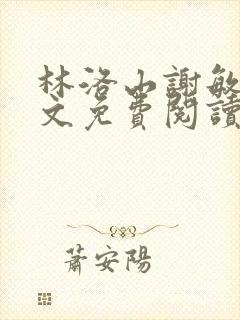 林洛山謝敏
文免費閱讀
蕭安陽